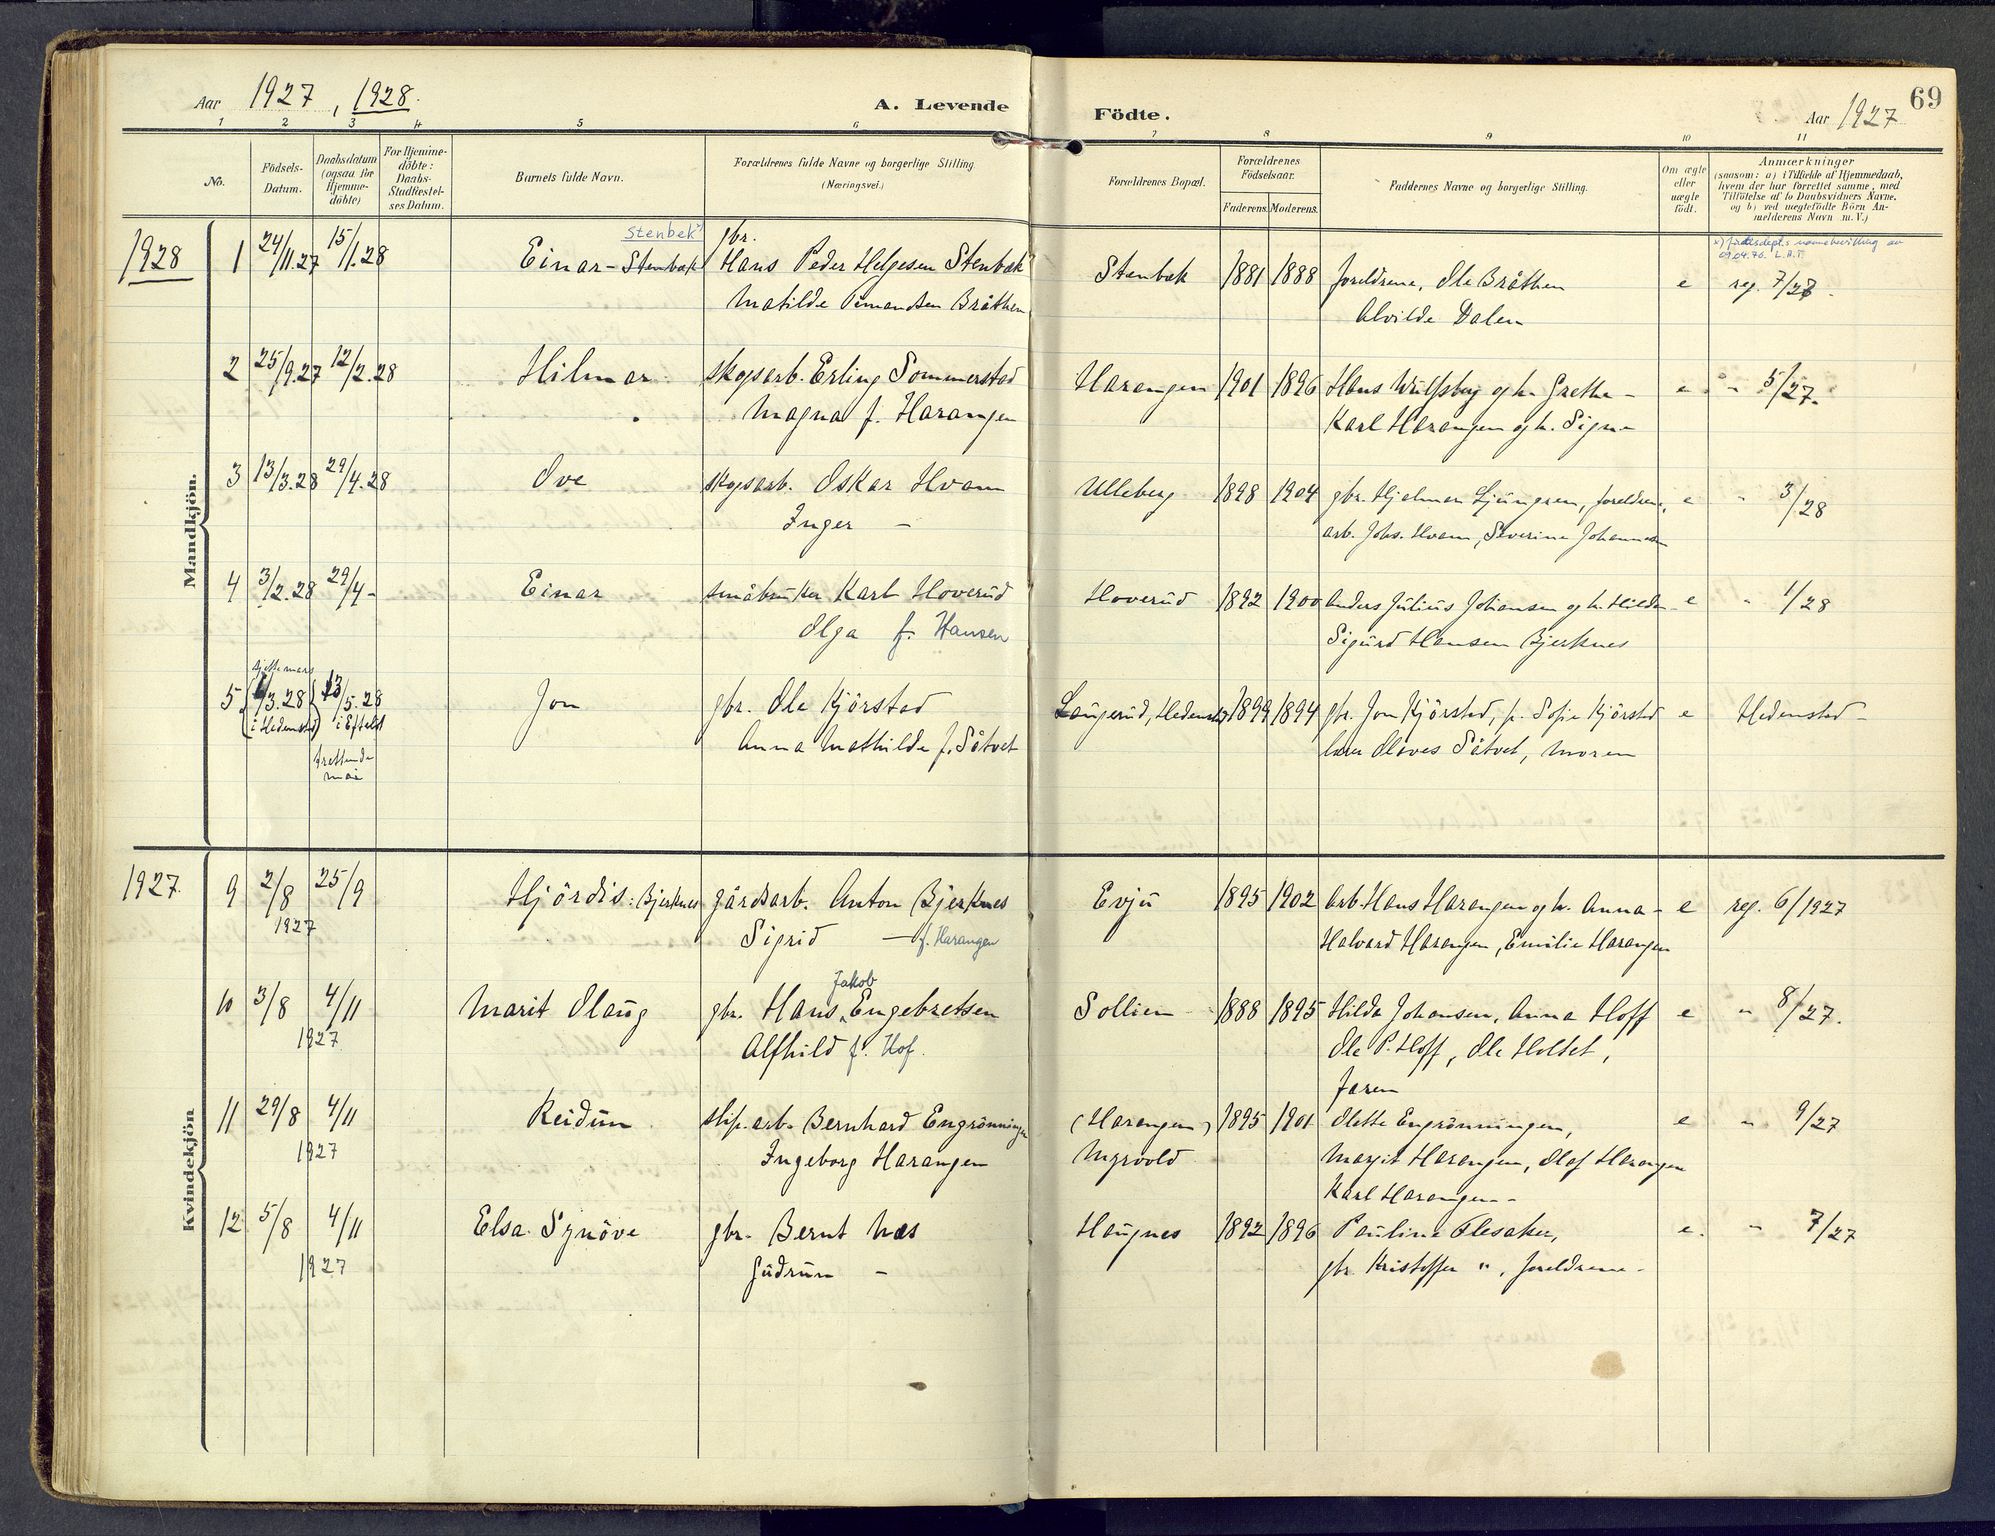 Aar 1927, 1928.
A. Levende
Födte.
Aar 1927
69
1 2 3 4 5 6 7 8 9 10 11
No.
Födsels-
Datum.
Daabsdatum
(ogsaa for
Hjemme-
döbte)
For Hjemme-
döbte:
Daabs-
Stadfæstel-
ses Datum.
Barnets fulde Navn.
Forældrenes fulde Navne og borgerlige Stilling
(Næringsvei.)
Forældrenes Bopæl.
Forældrenes
Födselsaar.
Faderens. Moderens.
Faddernes Navne og borgerlige Stilling.
Om ægte
eller
uægte
födt.
Anmærkninger
(saasom: a) i Tilfælde af Hjemmedaab,
hvem der har forrettet samme, med
Tilföielse af to Daabsvidners Navne.
og b) ved uægtefödte Börn An-
melderens Navn m. V.)
Mandkjön.
1928
Stenbek
1 24/11.27 15/1.28 Einar - Stenbæk gbr. Hans Peder Helgesen Stenbæk Stenbæk 1881 1888 foreldrene, Ole Bråthen e reg. 7/27.
Matilde Bråthen
Alvilde Dalen
2 25/9.27 12/2.28 Hilmar skogsarb. Erling Sommerstad Harangen 1901 1896 Hans Wulfsberg og h. Grethe - e " 5/27.
Magna f. Harangen
Karl Harangen og h. Signe
3 13/3.28 29/4.28 Ove skogsarb. Oskar Hvam Ulleberg 1898 1904 gbr. Hjelmer Ljungren, foreldrene, e " 3/28
Inger -
arb. Johs. Hvam, Severine Johannesen
4 3/2.28 29/4 - Einar småbruker Karl Hoverud Hoverud 1892 1900 Anders Julius Johansen og h. Hilda e " 1/28
Olga f. Hansen
Sigurd Hansen Bjerknes
5 /3.28 13/5.28 Jon gbr. Ole Kjörstad Laugerud, Hedenstad 1899 1894 gbr. Jon Kjörstad, f. Sofie Kjörstad e Hedenstad -
(i Hedenstad) i Efteløt
Anna Mathilde f. Såtvet
lærer Olaves Såtvet, moren
trettende
mai
Kvindekjön
1927.
9 2/8 25/9 Hjördis: Bjerknes gårdsarb. Anton Bjerknes Evju 1895 1902 Arb. Hans Harangen og h. Anna - e reg. 6/1927
1927
Sigrid - f. Harangen
Halvard Harangen, Emilie Harangen
Jakob
10 3/8 4/11 Marit Olaug gbr. Hans Engebretsen Sollien 1888 1895 Hilda Johansen, Anna Hoff e " 8/27.
1927
Alfhild f. Hof.
Ole P. Hoff, Ole Holtet,
faren
11 29/8 4/11 Reidun slip.arb. Bernhard Engrönningen (Harangen) 1895 1901 Olette Engrönningen, e " 9/27
1927
Ingeborg Harangen
Myrvold
Margit Harangen, Olaf Harangen
Karl Harangen -
12 5/8 4/11 Elsa Synöve gbr. Bernt Næs Haugnes 1892 1896 Pauline Flesaker, e. " 7/27
1927
Gudrun -
gbr. Kristoffer ", foreldrene -